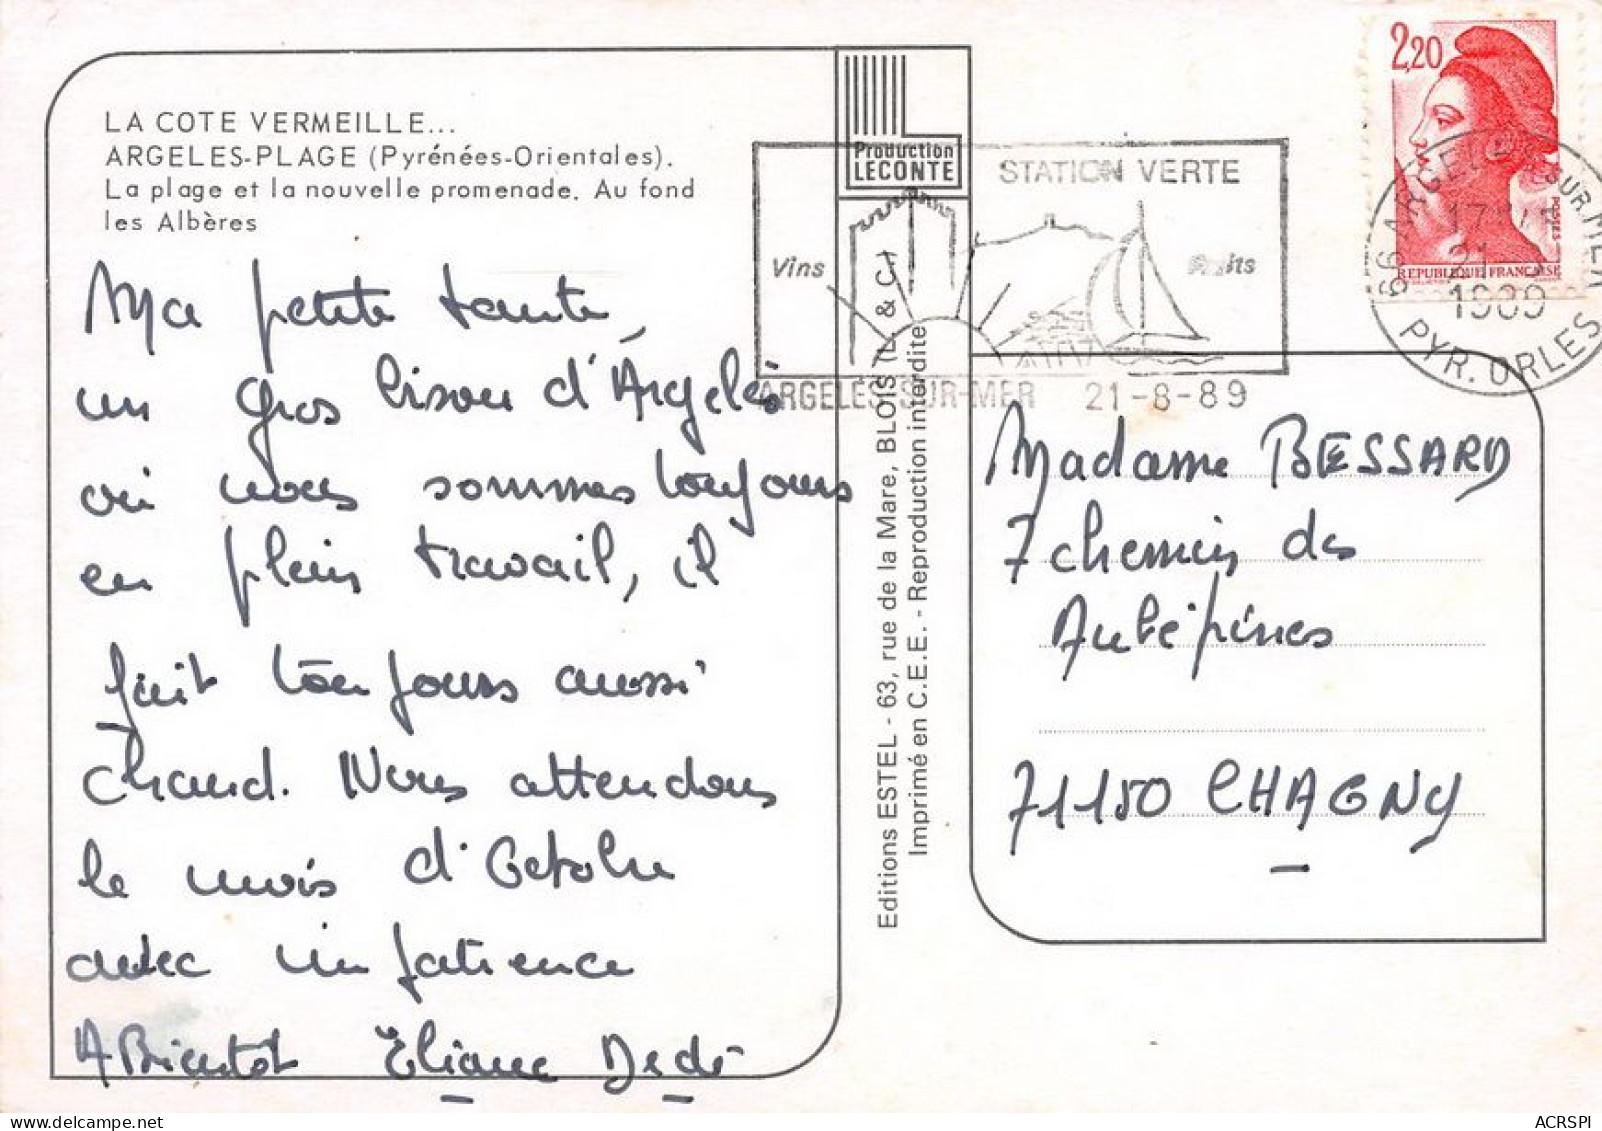 LA COTE VERMEILLE...
ARGELES-PLAGE (Pyrénées-Orientales).
La plage et la nouvelle promenade. Au fond
les Albères
Ma petite tante,
un gros bisou d'Argelès
où nous sommes toujours
en plein travail, il
fait toujours aussi
chaud. Nous attendons
le mois d'Octobre
avec impatience
A Bientôt Eliane Dédé
Production
LECONTE
STATION VERTE
Vins
Fruits
ARGELÈS-SUR-MER 21-8-89
Editions ESTEL - 63, rue de la Mare, BLOIS (L. & C)
Imprimé en C.E.E. - Reproduction interdite
2,20
REPUBLIQUE FRANÇAISE
POSTES
66 ARGELES SUR MER
1989
PYR. ORLES
Madame BESSARD
7 chemin des
Aubépines
71150 CHAGNY
ACRSPI